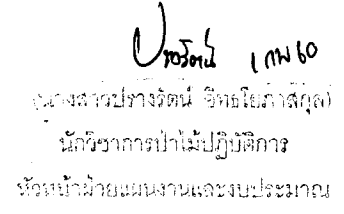 (นางสาวปรางรัตน์ อิทธโยภาสกุล)
นักวิชาการป่าไม้ปฏิบัติการ
หัวหน้าฝ่ายแผนงานและงบประมาณ